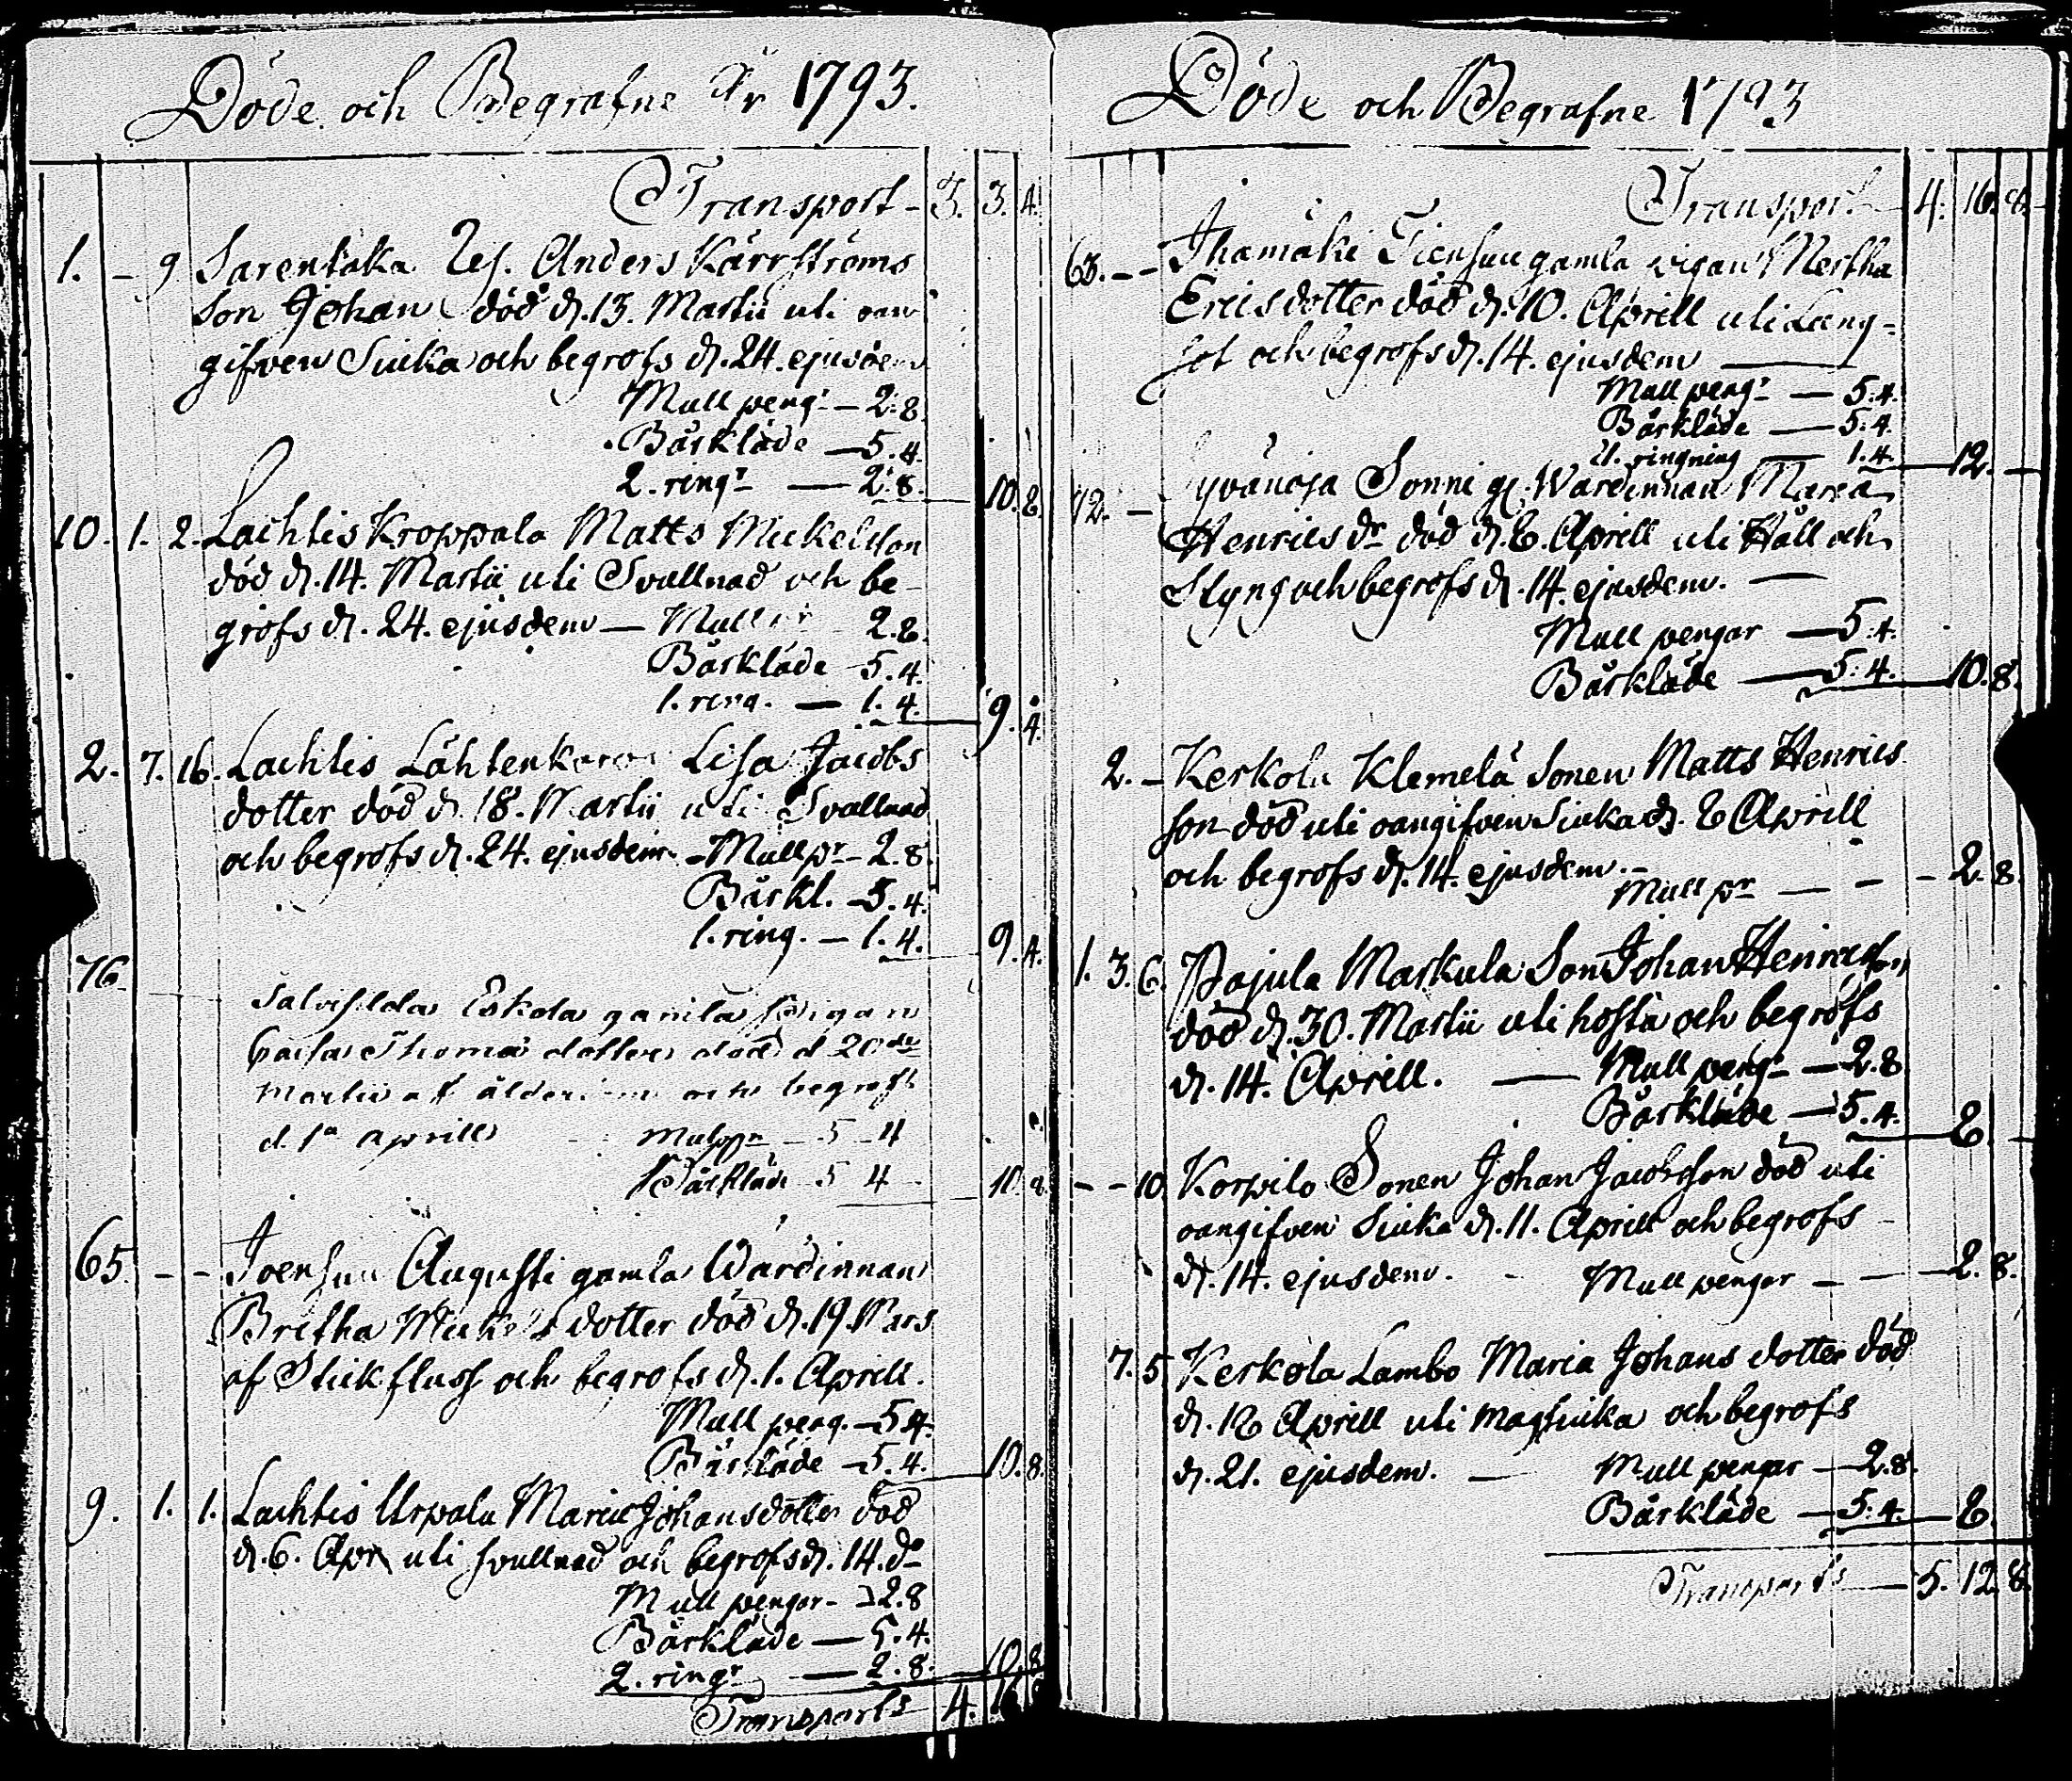 Döde och Begrafne År 1793.
Transport - 3. 3. 4.
1. - 9 Sarentaka Ref. Anders Kärrströms
son Johan död d. 13. Martii uti oan
gifven Siuka och begrofs d. 24. ejusdem
Mull peng.r - 2.8.
Bårkläde - 5.4.
2. ring.r - 2.8. 10. 8.
10. 1. 2. Lachtis Kroppala Matts Mickelsson
död d. 14. Martii uti Svallnad och be-
grofs d. 24. ejusdem - Mull 2.8.
Bårkläde 5.4.
1. ring. - 1.4. 9. 4.
2. 7. 16. Lachtis Lisa Jacobs
dotter död d. 18. Martii uti Svallnad
och begrofs d. 24. ejusdem - Mull pr - 2.8.
Bårkl. - 5.4.
1. ring. - 1.4. 9. 4.
76 Eskola gamla
Thomæ dotter död d 20de
Martii af och begrofs
d. 1a Aprill - 5 - 4
Bårkläde 5 4 10. 8.
65. - - Joensuu Augusti gamla Värdinnan
Bretha Mickels dotter död d. 19. Mars
af Stickfluss och begrofs d. 1. Aprill.
Mull peng. - 5.4.
Bårkläde - 5.4. 10. 8.
9. 1. 1. Lachtis Urpala Maria Johansdotter död
d. 6. Apr uti svullnad och begrofs d. 14. do
Mull pengar - 2.8
Bårkläde - 5.4.
2. ringr - 2.8. 10. 8
Transports 4.
Döde och Begrafne 1793
Transport 4. 16. 8.
63. - - Ihamäki Tiensuu gamla pigan Mertha
Ericsdotter död d. 10. Aprill uti Lung-
sot och begrofs d. 14. ejusdem
Mull peng.r - 5.4.
Bårkläde - 5.4.
1. ringning - 1.4. 12. -
72. - Sonni gl. Wärdinnan Maria
Henrics dr död d. 8. Aprill uti Håll och
Styng och begrofs d. 14. ejusdem. -
Mull pengar - 5.4.
Bårkläde - 5.4. 10. 8.
2. - Kerkola Klemelä Sonen Matts Henrics
son död uti oangifven Siuka d. 8 Aprill
och begrofs d. 14. ejusdem. -
Mull pr - - - 2. 8.
1. 3. 6. Pajula Markula Son Johan Henricsson
död d. 30. Martii uti hosta och begrofs
d. 14. Aprill. - Mull peng.r - 2.8
Bårkläde - 5.4. 8. -
- - 10. Korpilo Sonen Johan Jacobsson död uti
oangifven Siuka d. 11. Aprill och begrofs
d. 14. ejusdem. - Mull pengar - - 2. 8.
7. 5 Kerkola Lambo Maria Johans dotter död
d. 18 Aprill uti magsiuka och begrofs
d. 21. ejusdem. - Mull pengar - 2.8.
Bårkläde - 5.4. 8.
Transports - 5. 12. 8.